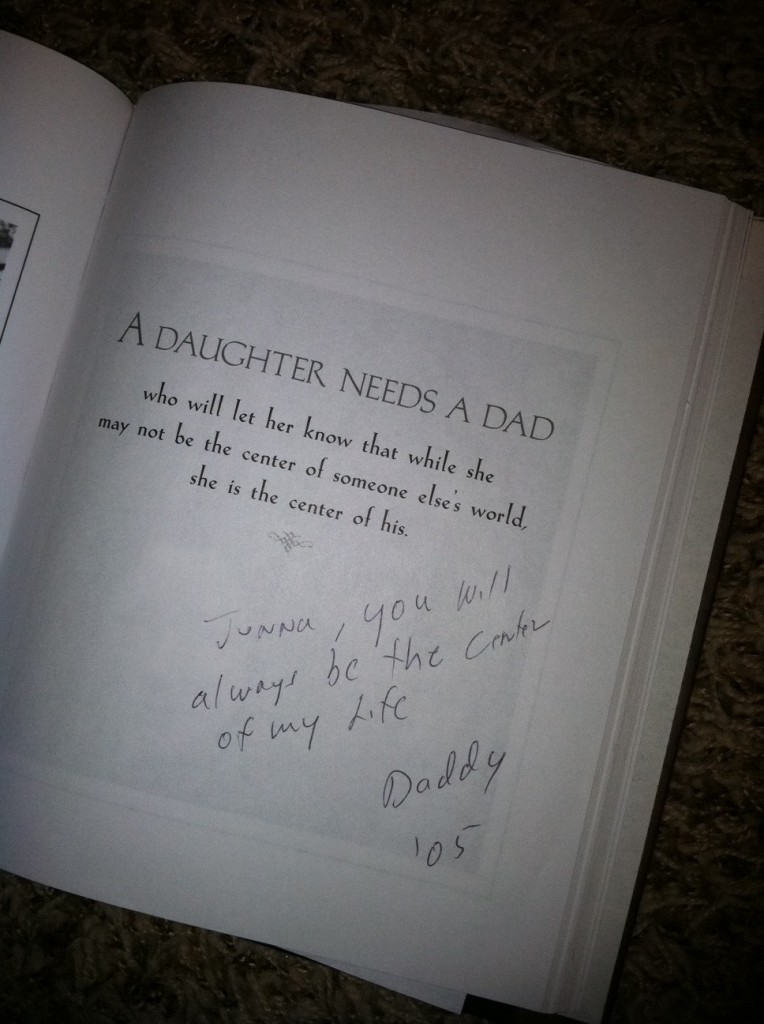 A DAUGHTER NEEDS A DAD
who will let her know that while she
may not be the center of someone else's world,
she is the center of his.
Junna, you will
always be the center
of my Life
Daddy
'05